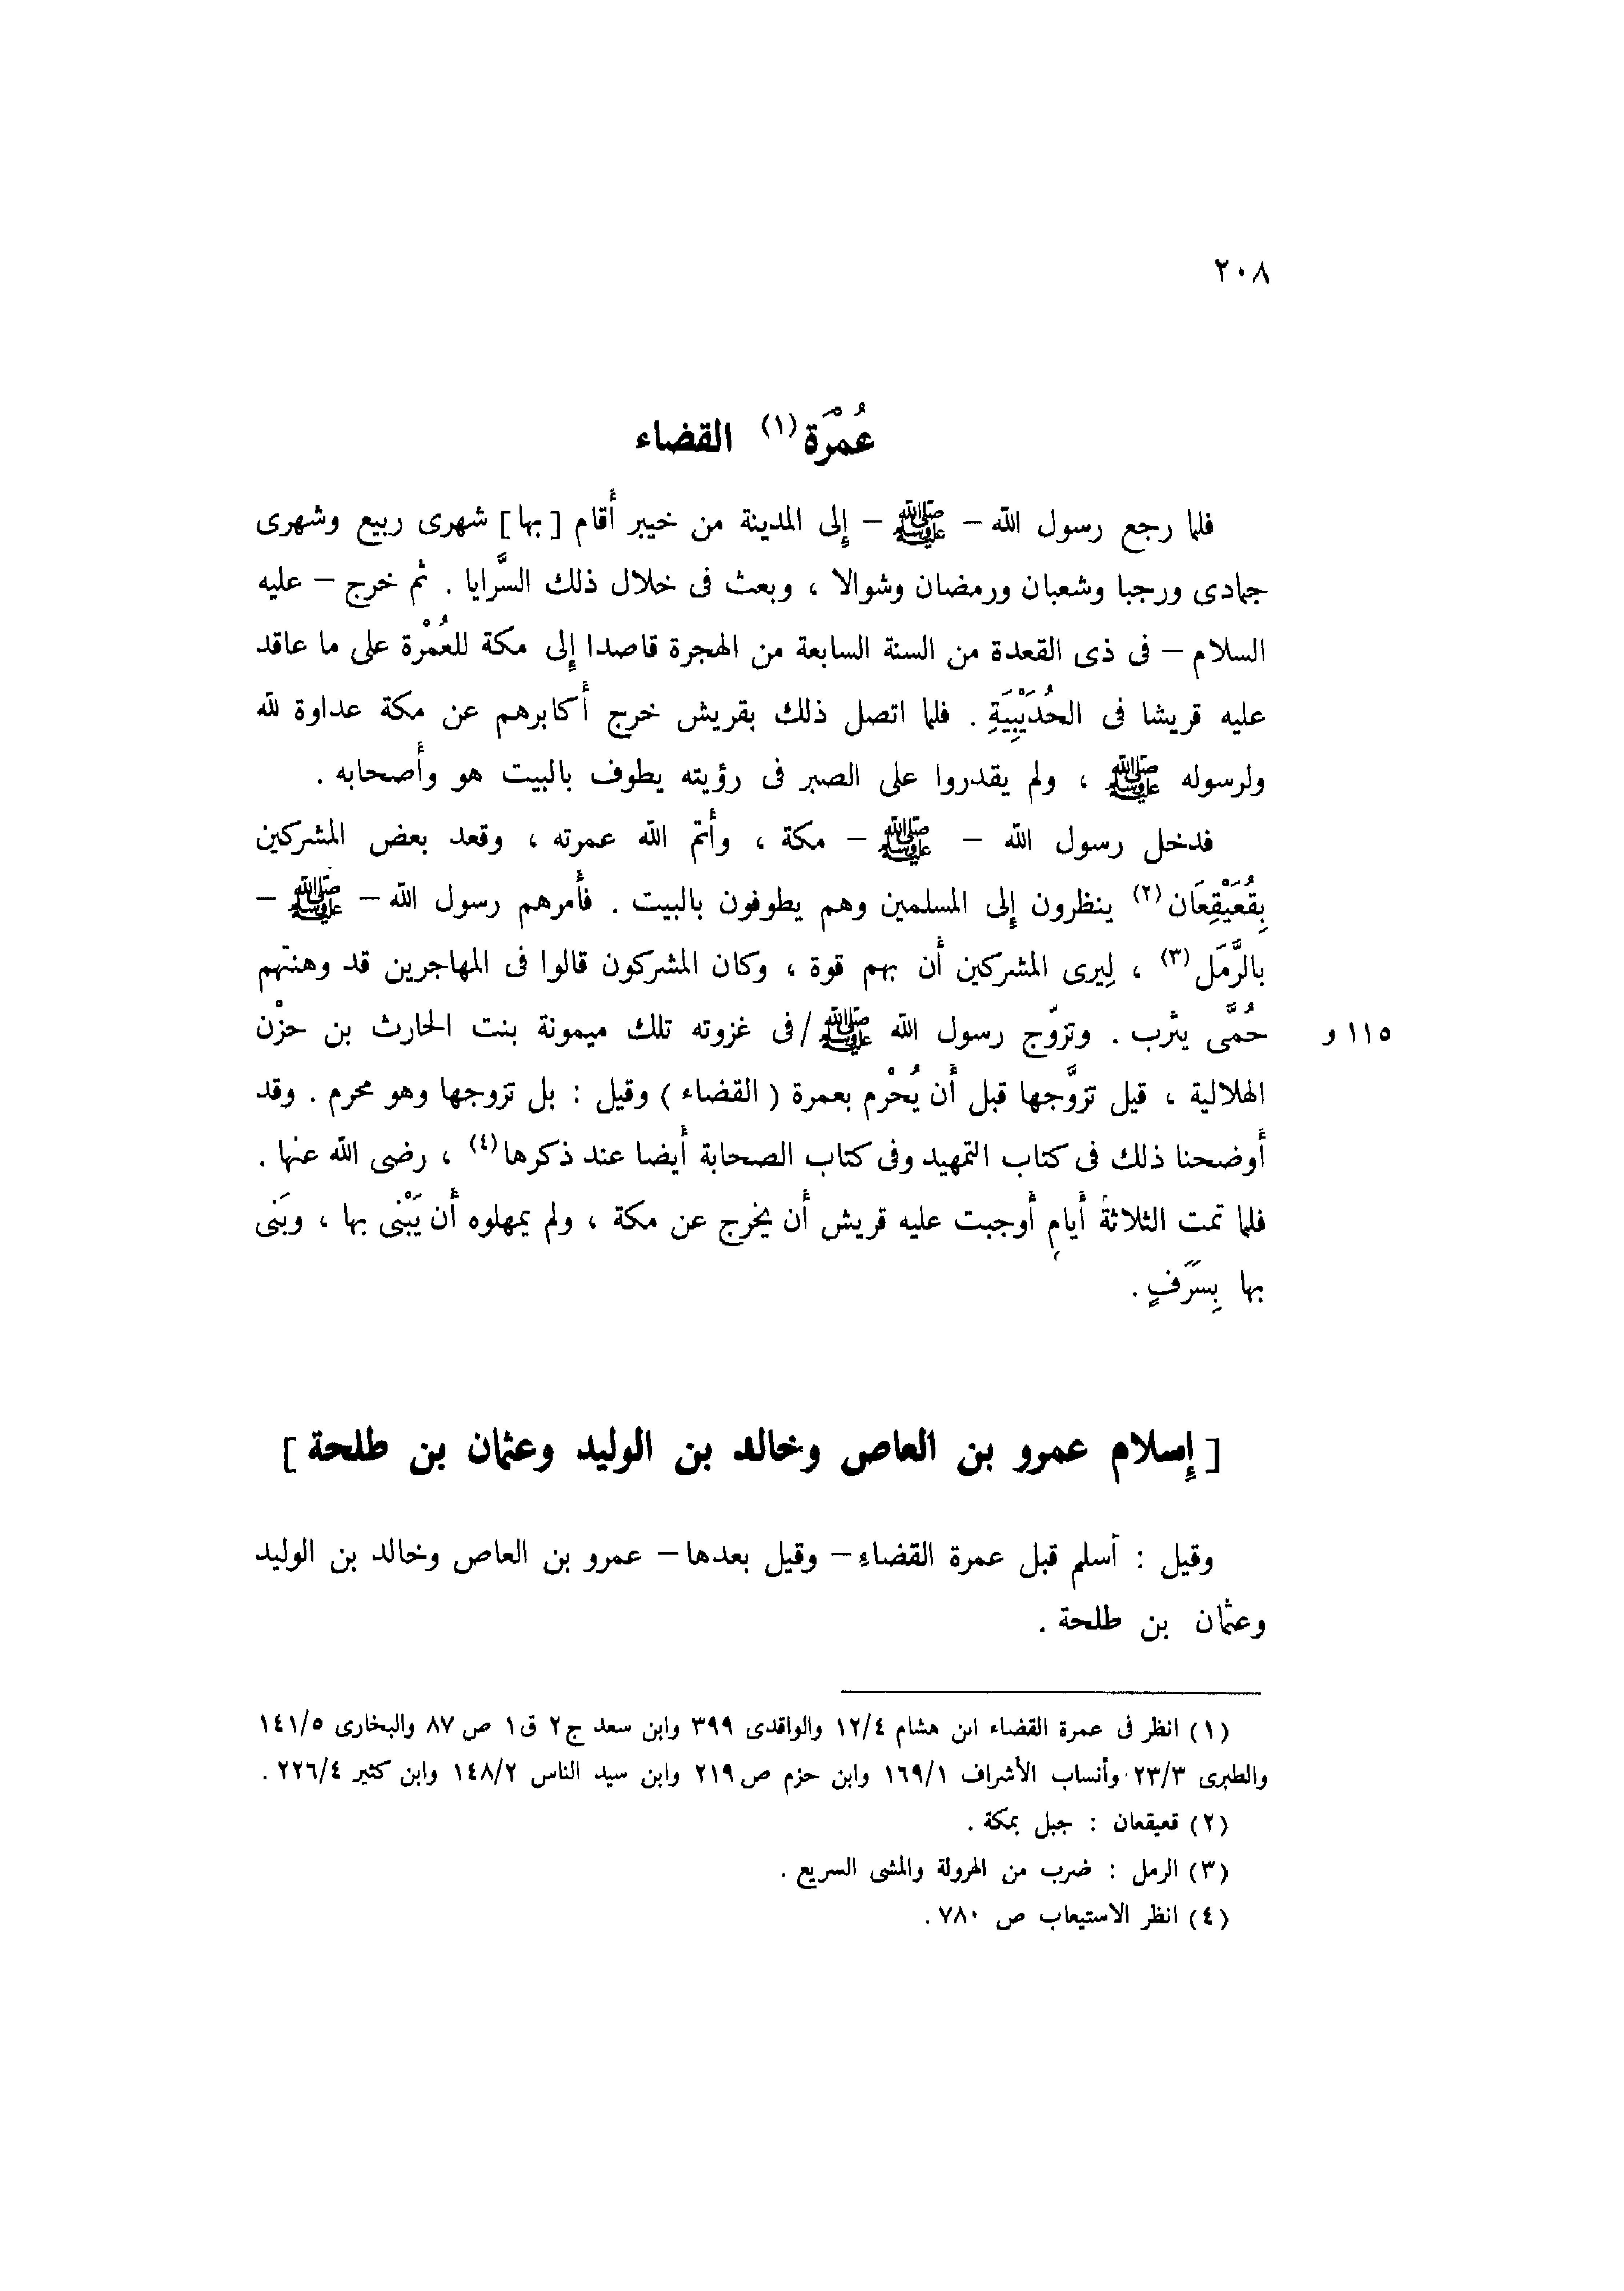 ٢٠٨
عُمْرَة(١) القضاء
فلما رجع رسول الله – ﷺ – إلى المدينة من خيبر أقام [بها] شهرى ربيع وشهرى
جمادى ورجبا وشعبان ورمضان وشوالا ، وبعث فى خلال ذلك السَّرايا . ثم خرج – عليه
السلام – فى ذى القعدة من السنة السابعة من الهجرة قاصدا إلى مكة للعُمْرة على ما عاقد
عليه قريشا فى الحُدَيْبِيَةِ . فلما اتصل ذلك بقريش خرج أكابرهم عن مكة عداوة لله
ولرسوله ﷺ ، ولم يقدروا على الصبر فى رؤيته يطوف بالبيت هو وأصحابه .
فدخل رسول الله – ﷺ – مكة ، وأتم الله عمرته ، وقعد بعض المشركين
بِقُعَيْقِعَان(٢) ينظرون إلى المسلمين وهم يطوفون بالبيت . فأمرهم رسول الله – ﷺ –
بالرَّمَل(٣) ، لِيرى المشركين أن بهم قوة ، وكان المشركون قالوا فى المهاجرين قد وهنتهم
حُمَّى يثرب . وتزوّج رسول الله ﷺ /فى غزوته تلك ميمونة بنت الحارث بن حزْن
١١٥ و
الهلالية ، قيل تزوَّجها قبل أن يُحْرم بعمرة ( القضاء ) وقيل : بل تزوجها وهو محرم . وقد
أوضحنا ذلك فى كتاب التمهيد وفى كتاب الصحابة أيضا عند ذكرها(٤) ، رضى الله عنها .
فلما تمت الثلاثةُ أيامٍ أوجبت عليه قريش أن يخرج عن مكة ، ولم يمهلوه أن يَبْنى بها ، وبَنى
بها بِسَرَفٍ .
[ إسلام عمرو بن العاص وخالد بن الوليد وعثمان بن طلحة ]
وقيل : أسلم قبل عمرة القضاء – وقيل بعدها – عمرو بن العاص وخالد بن الوليد
وعثمان بن طلحة .
(١) انظر فى عمرة القضاء ابن هشام ١٢/٤ والواقدى ٣٩٩ وابن سعد ج٢ ق١ ص ٨٧ والبخارى ١٤١/٥
والطبرى ٢٣/٣ وأنساب الأشراف ١٦٩/١ وابن حزم ص ٢١٩ وابن سيد الناس ١٤٨/٢ وابن كثير ٢٢٦/٤ .
(٢) قعيقعان : جبل بمكة .
(٣) الرمل : ضرب من الهرولة والمشى السريع .
(٤) انظر الاستيعاب ص ٧٨٠ .